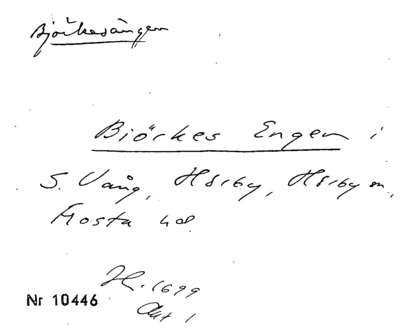 Björkesängen
Biörkes Engen i
S. Vång, Hörby, Hörby sn,
Frosta hd.
H. 1699
Akt 1
Nr 10446